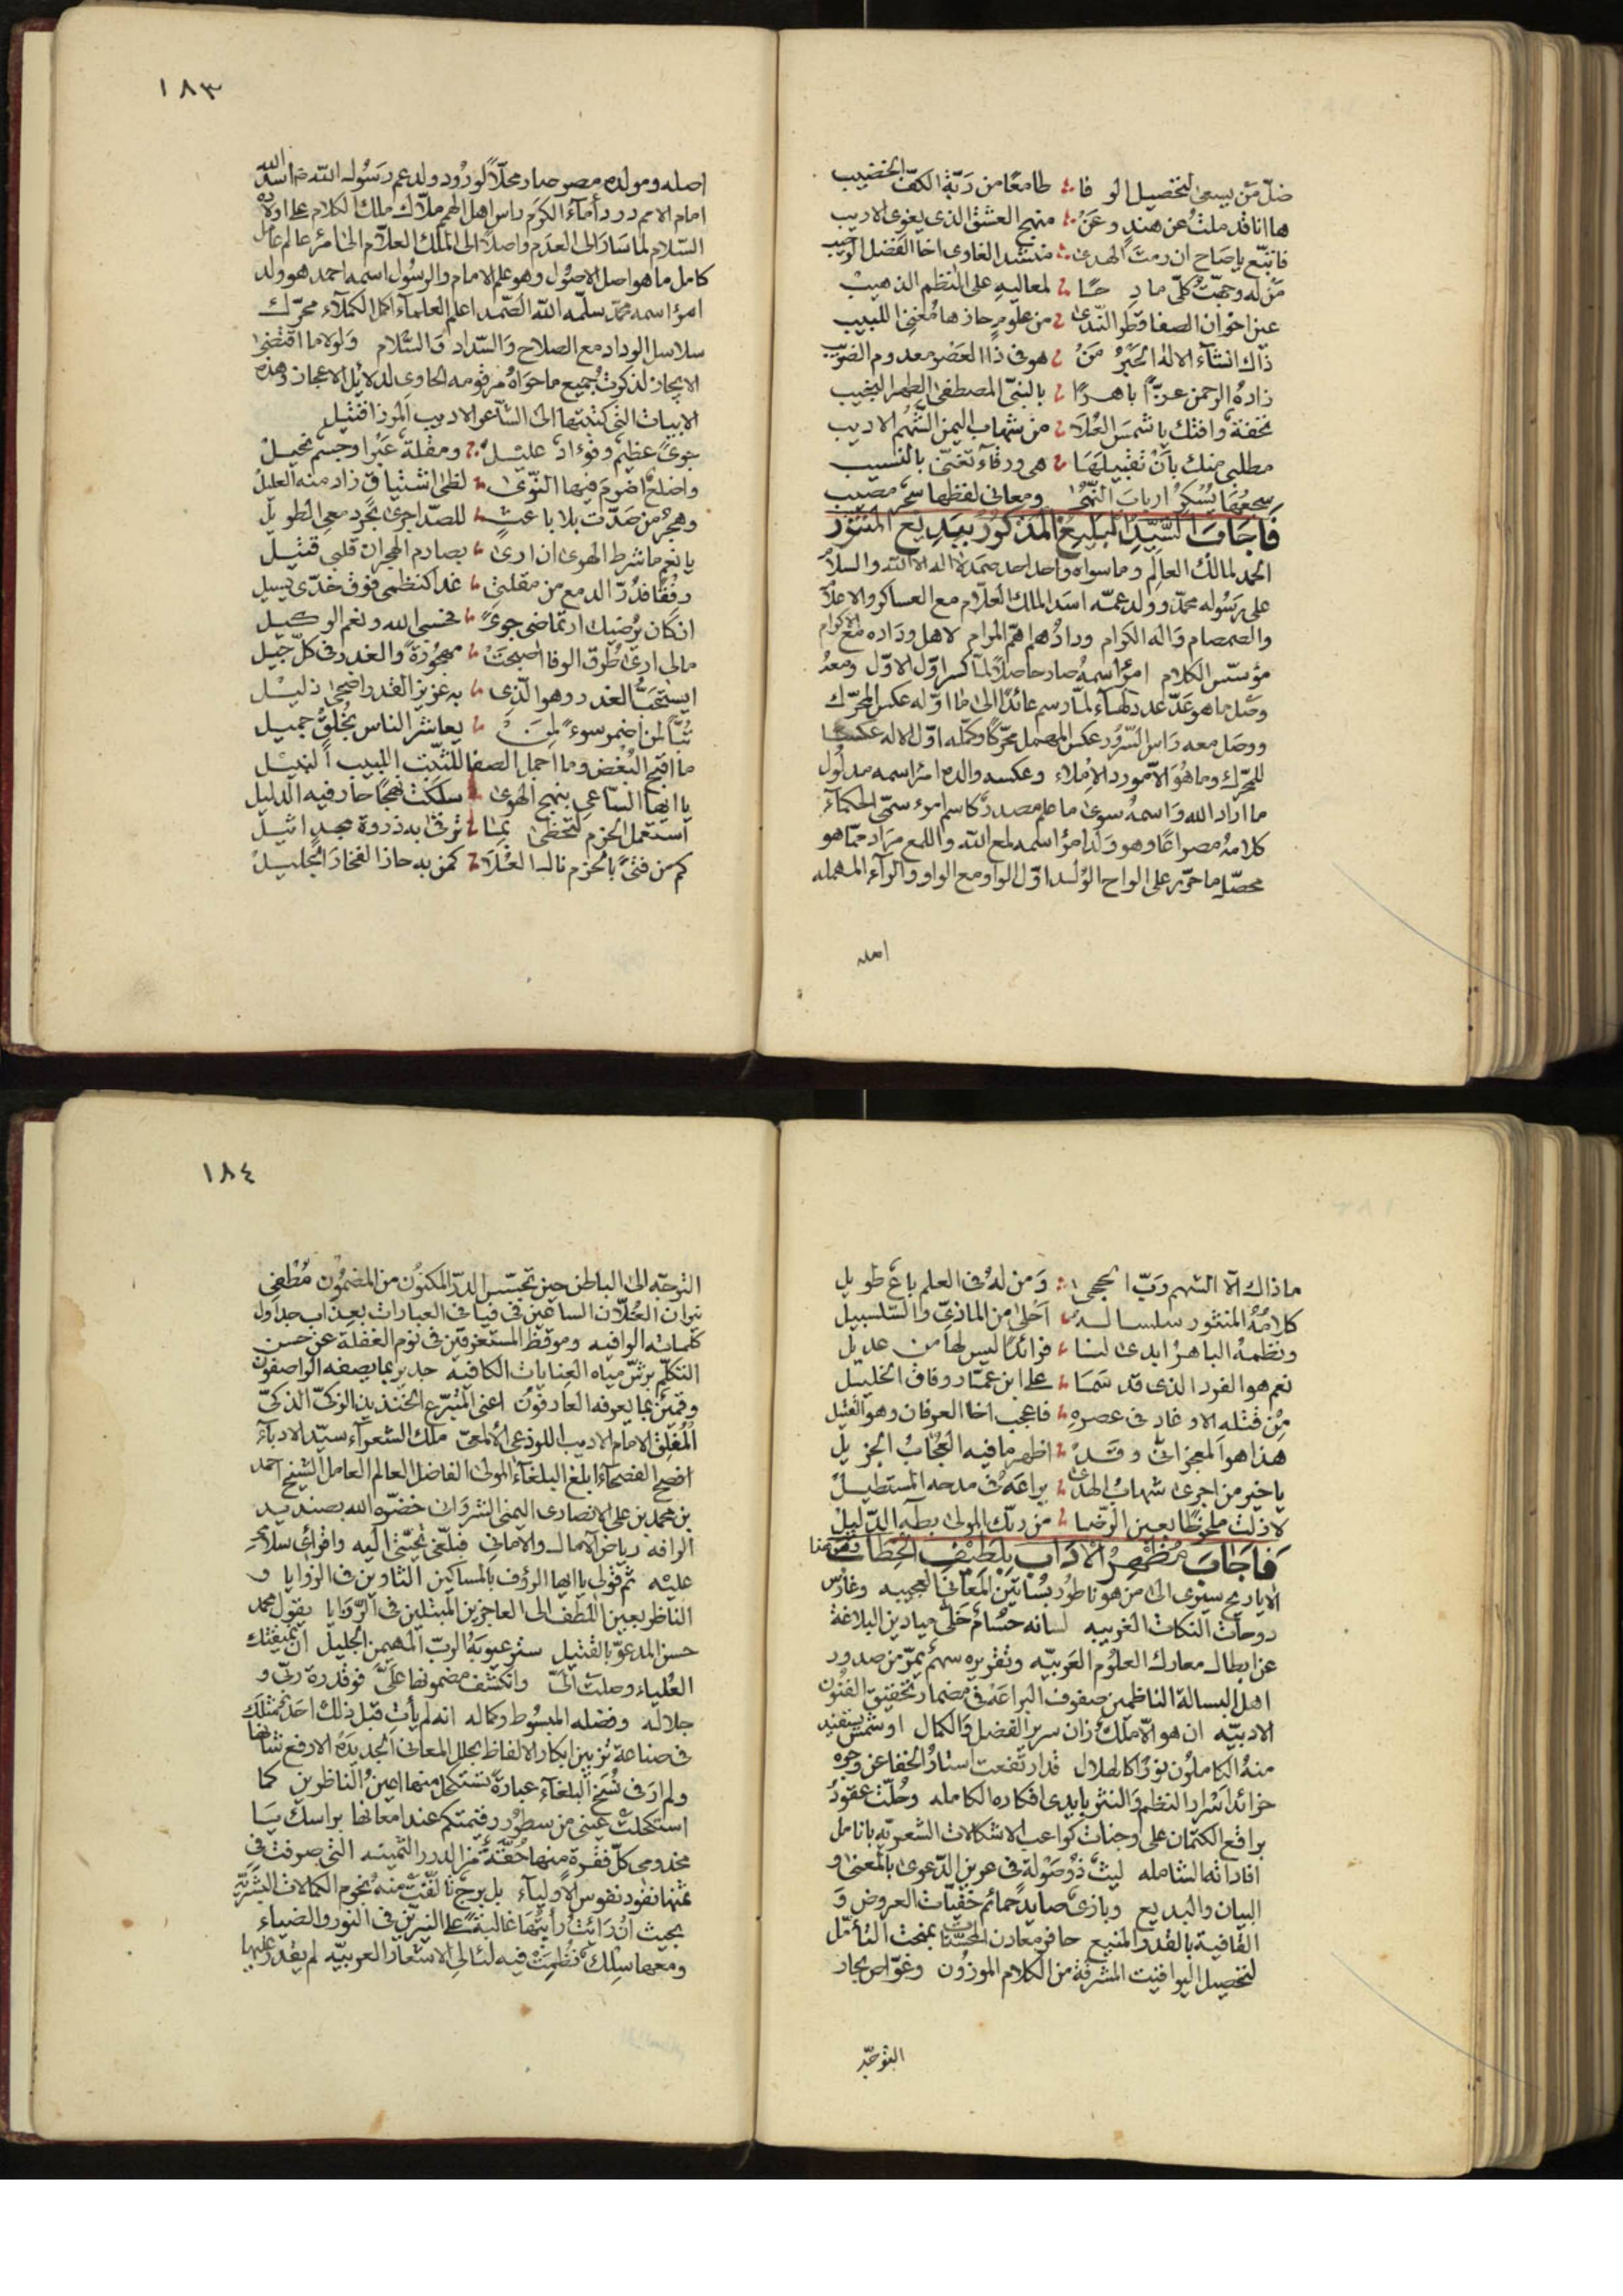 ضلّ مَن يسعى لتحصيل الوفا طامعًا من رَبّة الكفّ الخضيب
ها انا قد ملتُ عن هندٍ وعَنْ منهج العشق الذى يغوى الاريب
فاتبّع ياصَاح ان رمتَ الهدى مرشد الغاوى اخا الفضل
مَن له وجّهتُ كلّ لمعاليهِ على النظم الذهيبْ
عين اخوان الصفا قطر النّدى من علومٍ حازها مُغنى اللبيب
ذاك انشآء الاله الحَبْرُ مَنْ هو فى ذا العَصْر معدوم الضريب
زادهُ الرحمن عزّاً باهرًا بالنبىّ المصطفى الطهر النجيب
تحفةٌ وافتك يا شمسَ العُلاَ من شهاب اليمن الشّهْم الاديب
مطلبى منك بأنْ تقبيلَهَا هى ورقآء تغنّى بالنسيب
سجعُهَا يُسْكِرُ اربابَ النّهى ومعانى لفظها سهم مصيب
فَاَجَابَ السَّيِّدُ البَليغ المَذكُورُ ببَدِيع المَنثور
الحمد لمالك العالم وما سواه واحد احد صمد لا اله الا الله والسلام
على رَسُوله محمّد وولد عمّه اسد الملك العلّام مع العساكر والاعلام
والصمصام وَاله الكرام ودادُهم اهمّ المرام لاهل ودَاده مع الاكرام
مؤسّس الكلام امرؤ اسمهُ صار حاصلاً لمّا كسر اوّل الاوّل ومعهُ
وصل ما هو عَدّ عدد لهآء لمّا رسم عائدًا الى ما اوّله عكس المحرّك
ووصَل معه رَاس السّرُور عكس المهمل محرّكًا وكمّله اوّل الاله عكسًا
للمحرّك وما هوَ الاّ مورد الاملاء وعكسه والده امرؤ اسمه مدلُول
ما اراد الله وَاسمهُ سوى ما علم مصدرًا كاسم امرء سمّى الحكمآء
كلامهُ مصراعًا وهو وَلد امرؤ اسمه لمع الله واللمع مرَاد ممّا هو
محصّل ما حرّر على الواح الوُلد اوّل الواو مع الواو والرآء المهمله
اصله
١٨٣
اصله ومولده مصر صار محلّاً لورُود ولد عم رَسُول الله اسد الله
امام الامم دردأمآء الكرم راس اهل الهمم ملّاك ملك الكلام على اولاده
السّلام لما سَار الى العدَم واصلًا الى الملك العلّام امرؤ عالم عامل
كامل ما هو اصل الاصُول وهو علم الامام والرسُول اسمه احمد هو ولد
امرؤ اسمه محمّد سلّمه الله الصّمد اعلم العلمآء اكمل الكملآء محرّك
سلاسل الوداد مع الصلاح وَالسّداد وَالسّلام وَلولا ما اقتضى
الايجاز لذكرتُ جميع ما حوَاهُ مرقومه الحاوى لدلايل الاعجاز وهذه
الابيات التى كتبتها الى الشاعر الاديب المرزا قتيل
جوىً عظيم وفؤادٌ عليل ومقلةٌ عَبْرا وجسم نحيلْ
واضلعٌ اضرمَ فيها النّوى لظى اشتياق زاد منه العليلْ
وهجرُ من صَدّت بلا باعثٍ للصّد اجرى بحرد معى الطويلْ
يا نعم ما شرط الهوى ان ارىٰ بصارم الهجران قلبى قتيل
رفقًا فدُرّ الدمع من مقلتى غدا كنظمى فوق خدّى يسيل
ان كان يُرضيك ارتماضى جوىً فحسبى الله ونعم الوكيل
مالى ارىٰ طُرق الوفا اصبحَتْ مهجُورَةً والغدر فى كلّ جيل
ايستحَبُّ الغدر وهو الّذى به عزيز القدر اضحى ذليلْ
تُبّاً لمن اضمر سوءً لمَنْ يعاشر الناس بخُلقٍ جميل
ما اقبح البُغض وما اجمل الصفا للثّبت اللبيب النبيْل
يا ايها السّاعى بنهج الهوى سلكتَ نهجًا حار فيه الدليل
استعمل الحزم لتحظى بمَا ترقى به ذروة مجدٍ اثيل
كم من فتىً بالحزم نال العُلاَ كمن به حاز الفخارَ الجليلْ
ما ذاك الاّ الشهم رَبّ الحجى وَمن لهُ فى العلم باعٌ طويل
كلامُهُ المنثور سلسالهُ اَحْلى من الماذىّ والسّلسبيل
ونظمهُ الباهرُ ابدى لنا فرائدًا ليس لها من عديل
نعم هو الفرد الذى قد سَمَا على ابن عمّار وفاق الخليل
مِنْ قتله الاوغاد فى عصرهِ فاعجب اخا العرفان وهو القتيل
هذا هو المعجز اتى وقدْ اظهر ما فيه العُجابُ الجزيل
يا خير من اجرىٰ شهابُ الهدى يراعَهُ فى مدحه المستطيلْ
لا زلتَ ملحوظًا بعين الرّضا من ربّك المولى بطٓه الدّليلْ
فَاَجَابَ مُظهِرُ الآدَابَ بِلَطِيْفِ الخِطَاب
الا يا ريح سيرى الى من هو ناطورُ بُسَاتين المعانى العجيبه وغارس
دوحات النكات الغريبه لسانه حُسَامٌ حَلّى ميادين البلاغة
عن ابطال معارك العلُوم العربيّه وتقريره سهمٌ يمرّ من صدور
اهل البسالة الناظمين صفوف البراعة فى مضمار تحقيق الفنُون
الادبيّه ان هو الاّ ملكٌ زان سرير الفضل وَالكمال او شمسٌ يستفيد
منهُ الكاملُون نورًا كالهلال قد ارتفعت استارُ الخفا عن وجوه
خرائد اسْرار النظم وَالنثر بايدى افكاره الكامله وحُلّت عقودُ
براقع الكتمان على وجنات كواعب الاشكالات الشعريّه بانامل
افاداته الشامله ليثٌ ذوُ صَوْلةٍ فى عرين الدّعوى بالمعنى و
البيان والبديع وبازىّ صايد حمائم خفيّات العروض وَ
القافية بالقدر المنيع حافر معادن المحسّنات بمنحت التأمّل
لتحصيل اليواقيت المشرقة من الكلام الموزُون وغوّاص بحار
التوجّه
١٨٤
التوجّه الى الباطن حين تجسّس الدرّ المكنُون من المضمُون مُطفى
نيران العُلّان الساعين فى فيافى العبارات بعِذاب جداول
كلماته الوافيه وموقظ المستغرقين فى نوم الغفلة عن حسن
التكلّم برشّ مياه العِنايات الكافيه جدير بما يصفه الواصفون
وقمينٌ بما يعرفه العارفوُن اعنى المتبرّع الخنذيذ الزكىّ الذكىّ
المُفلِق الامام الاديب اللوذعى الالمعىّ ملك الشعرآء سيّد الادبآء
افصح الفصحآء ابلغ البلغآء المولى الفاضل العالم العامل الشيخ احمد
بن محمد بن على الانصارى اليمنى الشروَانى خضّره الله
الوافه رياض الآمال والامانى فبلّغى تحيّتى اليه واقرائى سلامى
عليْه ثم قولى يا ايها الرؤف بالمساكين الثاوين فى الزوايا و
الناظر بعين اللطف الى العاجزين المبتلين فى الرّزايا يقول محمد
حسن المدعوّ بالقتيل ستر عيوبَهُ الربّ المهيمن الجليل انّ نميقتك
العُلياء وصلت الىّ وانكشف مضمونها علىَّ فو قدرة ربّى و
جلاله وفضله المبسُوط وكماله انه لم يأتِ قبل ذلك احَدٌ بمثلك
فى صناعة تزيين ابكار الالفاظ بحلل المعانى الجديدَة الارفع شانها
ولم ارَ فى نُسَخ البلغآء عبارةً تستكمل منها اعينُ الناظرين كما
استكحلت عينى من سطوُر رقيمتكم عند امعانها براسك يَا
مخدومى كلّ فقرة منها حُقّةٌ من الدرر الثمينه التى صرفت فى
ثمنها نقود نفوس الاوليآء بل برجٌ تالّفت منهُ نجوم الكمالات البشريّة
بحيث اذا رَايتُ رايتُهَا غالبةً على النيرّين فى النور والضياء
ومعها سِلكٌ نُظمتْ فيه لئالى الاشعار العربيّه لم يقدر عليها